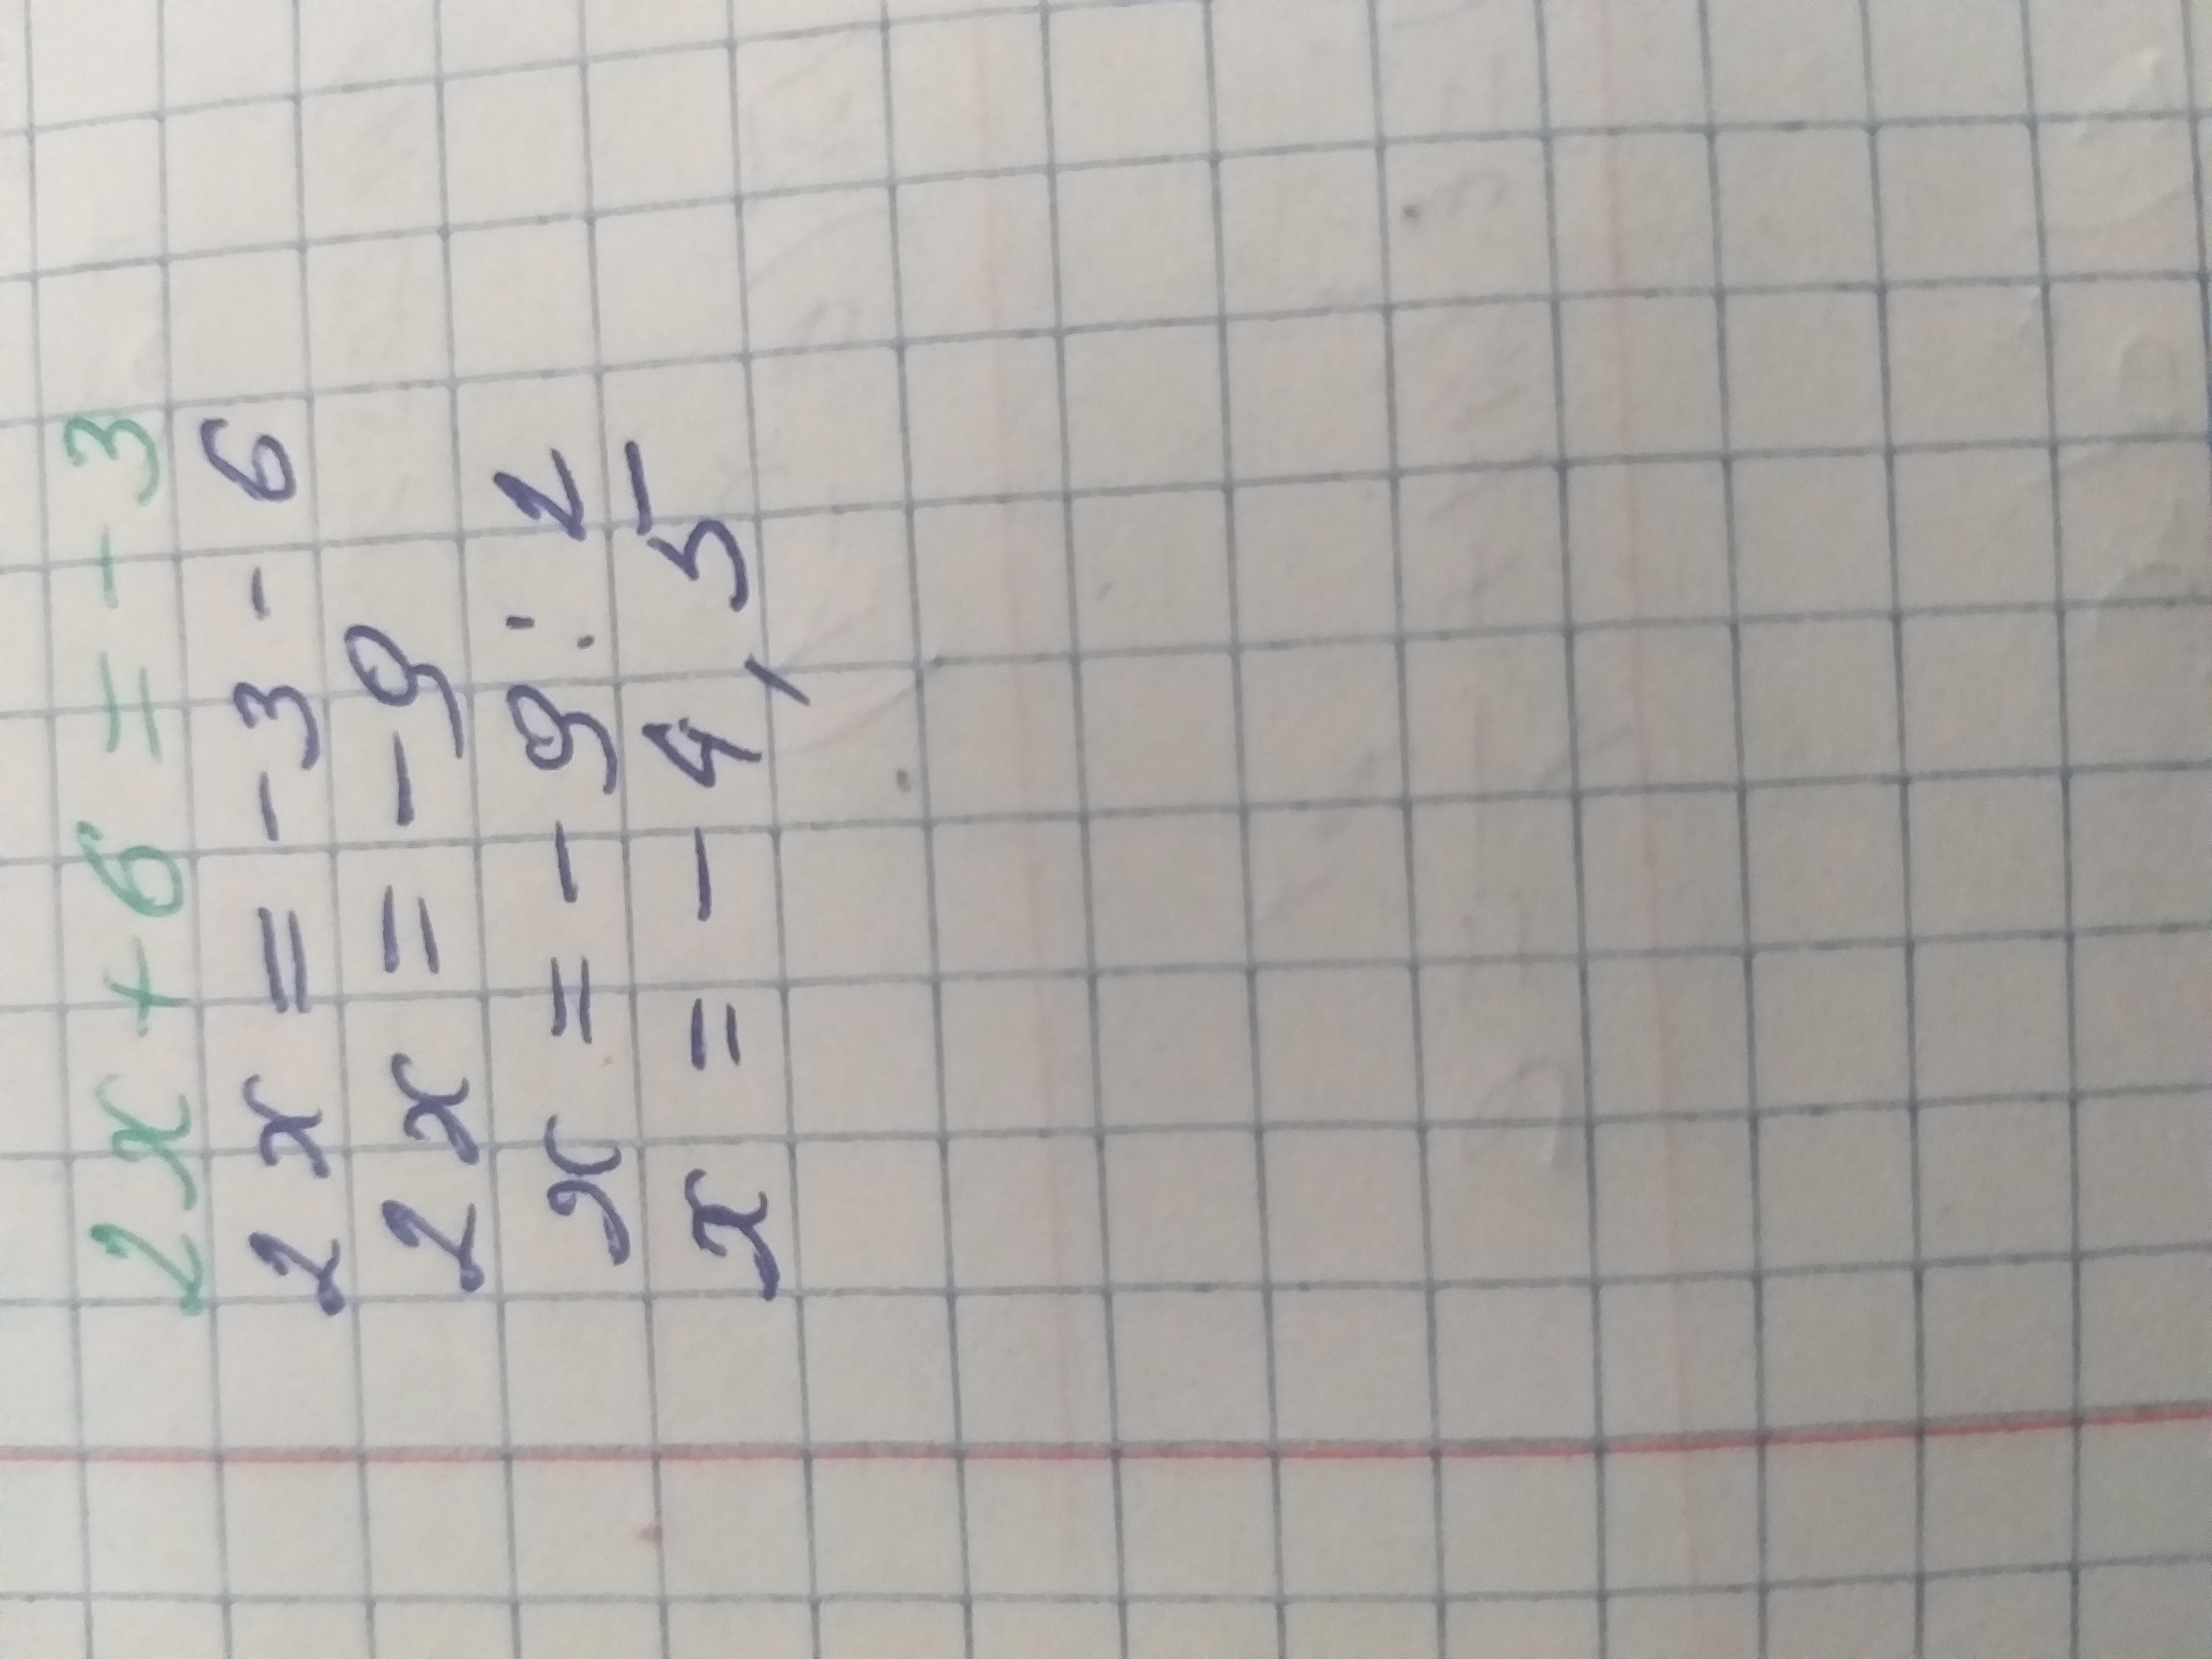 2x + 6 = -3
2x = -3 - 6
2x = -9
x = -9 : 2
x = -4,5